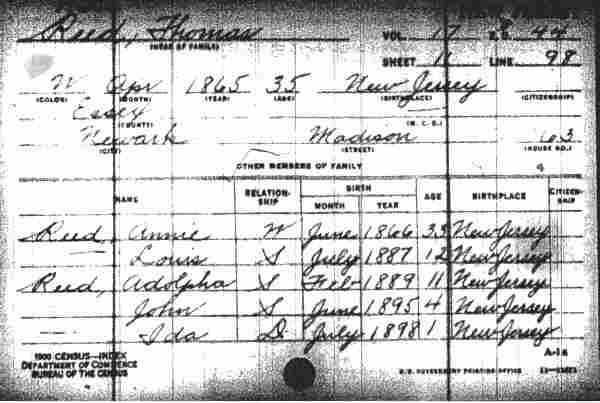 Reed, Thomas VOL. 17 E.D. 44
(HEAD OF FAMILY)
SHEET 11 LINE 98
W Apr 1865 35 New Jersey
(COLOR) (MONTH) (YEAR) (AGE) (BIRTHPLACE) (CITIZENSHIP)
Essex
(COUNTY) (M. C. D.)
Newark Madison 63
(CITY) (STREET) (HOUSE NO.)
OTHER MEMBERS OF FAMILY
NAME RELATION-SHIP BIRTH MONTH YEAR AGE BIRTHPLACE CITIZEN-SHIP
Reed, Annie W June 1866 33 New Jersey
Louis S July 1887 12 New Jersey
Reed, Adolpha S Feb 1889 11 New Jersey
John S June 1895 4 New Jersey
Ida D July 1898 1 New Jersey
1900 CENSUS—INDEX A-16
DEPARTMENT OF COMMERCE
BUREAU OF THE CENSUS U.S. GOVERNMENT PRINTING OFFICE